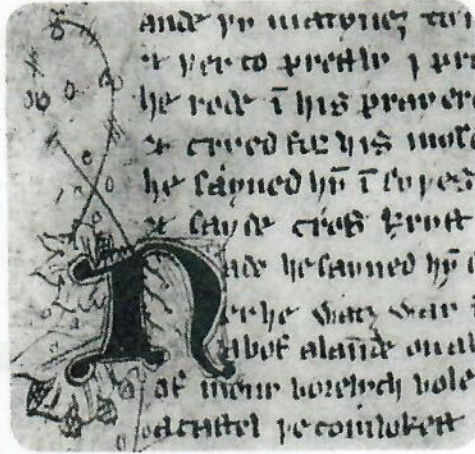 ande þy matyneȝ to
& þer to prestly I pra
he rode ī his prayere
& cryed for his
he sayned hȳ ī syþes
& sayde cros kryst
Nade he sayned hȳ
er he watȝ war
abof alaūde on a
of mony borelych bole
a castel þe comlokest